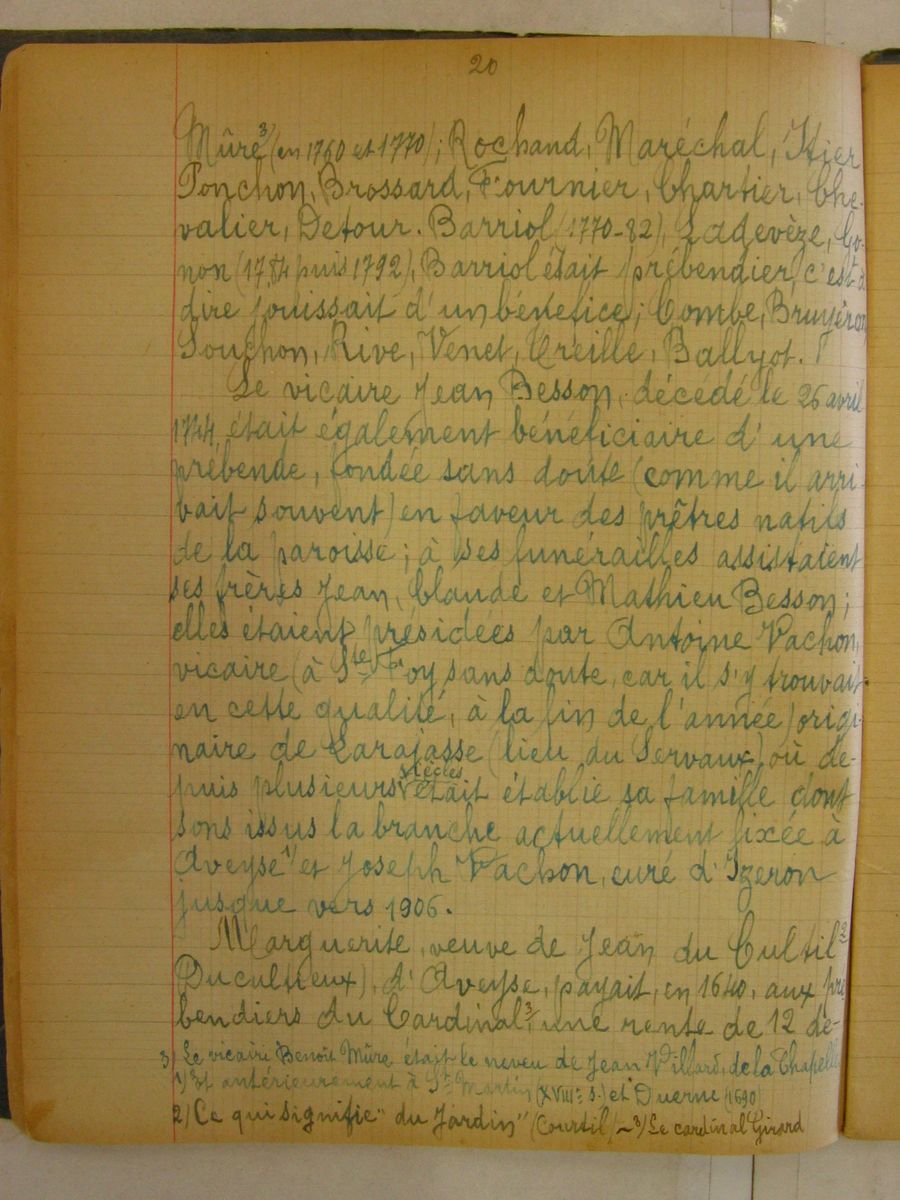 20
Mûre 3) (en 1760 et 1770); Rochand, Maréchal, Itier
Ponchon, Brossard, Fournier, Chartier, Che-
valier, Detour. Barriol (1770-82), Ladevèze, Go-
non (1784 puis 1792), Barriol était prébendier, c'est-à
dire jouissait d'un bénéfice; Combe, Bruyéron
Souchon, Rive, Venet, Creille, Ballyot.
Le vicaire Jean Besson, décédé le 26 avril
1744 était également bénéficiaire d'une
prébende, fondée sans doute (comme il arri-
vait souvent) en faveur des prêtres natifs
de la paroisse; à ses funérailles assistaient
ses frères Jean, Claude et Mathieu Besson;
elles étaient présidées par Antoine Vachon,
vicaire (à Ste Foy sans doute, car il s'y trouvait
en cette qualité, à la fin de l'année) origi-
naire de Larajasse (lieu du Servaux) où de-
puis plusieurs siècles était établie sa famille dont
sons issus la branche actuellement fixée à
Aveyse 1) et Joseph Vachon, curé d'Yzeron
jusque vers 1906.
Marguerite, veuve de Jean du Cultil 2
Ducultieux), d'Aveyse, payait, en 1640, aux pré
bendiers du Cardinal 3) une rente de 12 de-
3) Le vicaire Benoît Mûre était le neveu de Jean Villard, de la Chapelle
1) Et antérieurement à St Martin (XVIIIe s.) et Duerne (1690)
2) Ce qui signifie "du Jardin" (Courtil) ~ 3) Le cardinal Girard